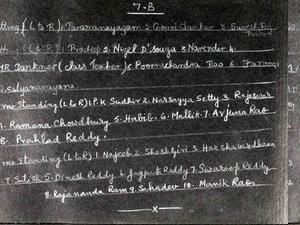 7-B
tting (L to R) 1. Paramanayagam 2. Gouri Shanker 3. Suresh
tting (L to R) 1 Pradeep 2. Nigel D'Souza 3. Narender 4.
MR Dankner (class Teacher) 5 Poornachandra Rao 6. Farooqi
Salyanarayana
ms Standing (L to R) 1. P.K Sudhir 2. Narsayya Setty 3. Rajeswar
4. Ramana Chowdhury 5. Habib. 6. Mallik. 7. Arjuna Rao
8. Prahlad Reddy.
ms Standing (L to R) 1. Najeeb 2. Sheshgiri 3. Harshavardhana
4. Satish 5. Dinesh Reddy 6 Jagpal Reddy 7. Swaroop Reddy
8. Rajananda Ram 9. Sahadev 10. Manik Rao.
x